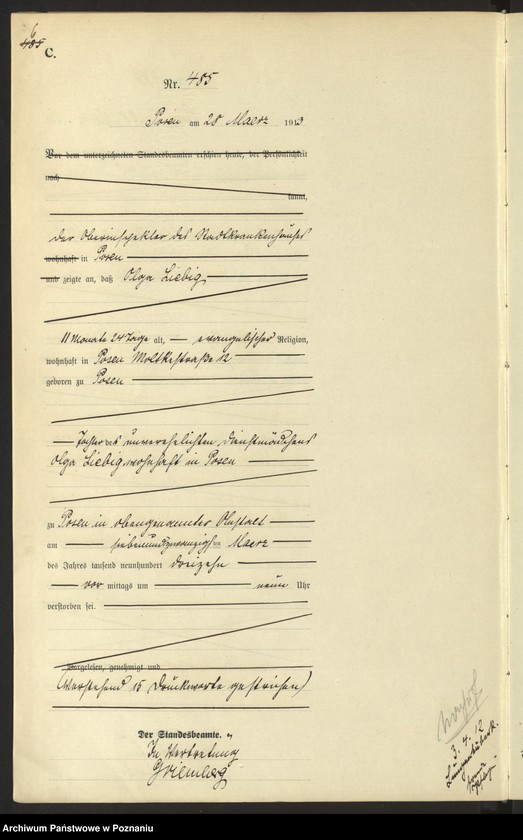 6
485
C.
Nr. 485
Posen am 28 Maerz 1913
Vor dem unterzeichneten Standesbeamten erschien heute, der Persönlichkeit
nach
kannt,
der Oberinspektor des Stadtkrankenhauses
wohnhaft in Posen
und zeigte an, daß Olga Liebig
11 Monate 24 Tage alt, evangelischer Religion,
wohnhaft in Posen Moltkestraße 12
geboren zu Posen
Tochter des unverehelichten Dienstmädchens
Olga Liebig, wohnhaft in Posen
zu Posen in obengenannter Anstalt
am siebenundzwanzigsten Maerz
des Jahres tausend neunhundert dreizehn
vor mittags um neun Uhr
verstorben sei.
Vorgelesen, genehmigt und
(Vorstehend 15 Druckworte gestrichen)
Der Standesbeamte.
In Vertretung
3. 4. 12
Archiwum Państwowe w Poznaniu